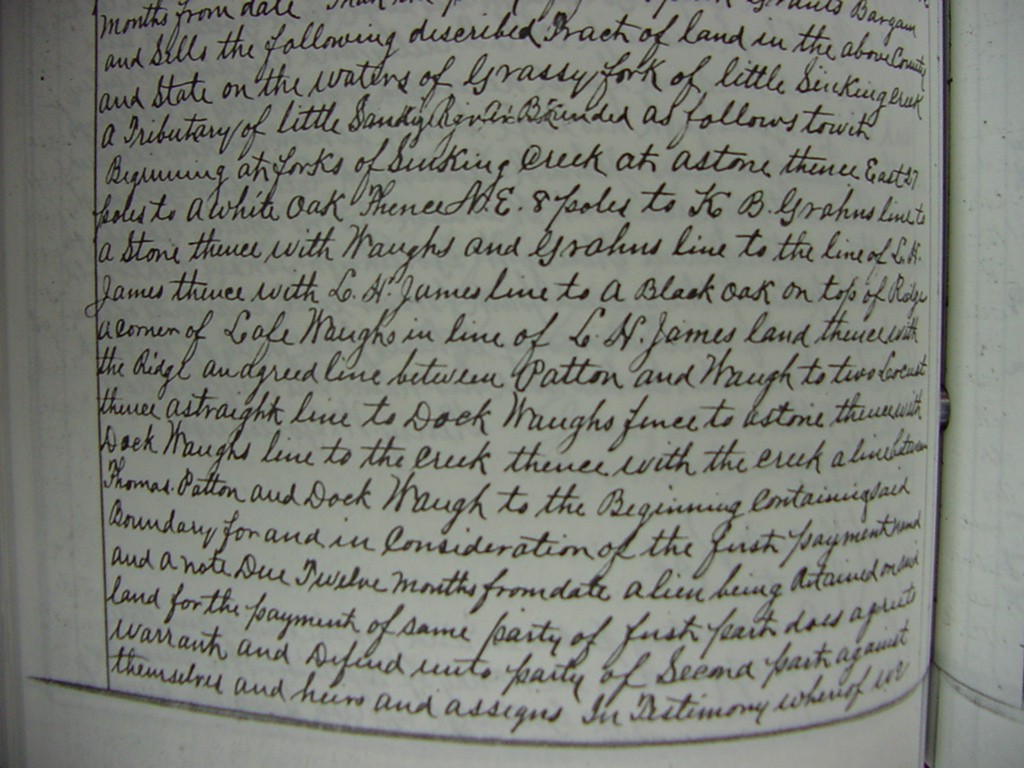 months from date
and Sells the following described Tract of land in the above County
and State on the waters of Grassy fork of little Sinking Creek
a Tributary of little Sandy River Bounded as follows towit
Beginning at forks of Sinking Creek at a stone thence East 57
poles to a white Oak Thence N.E. 8 poles to K B. Grahns line to
a Stone thence with Waughs and Grahns line to the line of L.H.
James thence with L. H. James line to a Black Oak on top of Ridge
a corner of Lafe Waughs in line of L. H. James land thence with
the Ridge and greed line between Patton and Waugh to two Locust
thence a straight line to Dock Waughs fence to a stone thence with
Dock Waughs line to the creek thence with the creek a line between
Thomas Patton and Dock Waugh to the Beginning Containing said
Boundary for and in Consideration of the first payment
and a note Due Twelve Months from date a lien being Retained on said
land for the payment of same party of first part does agree to
warrant and Defend unto party of Second part against
themselves and heirs and assigns In Testimony whereof we